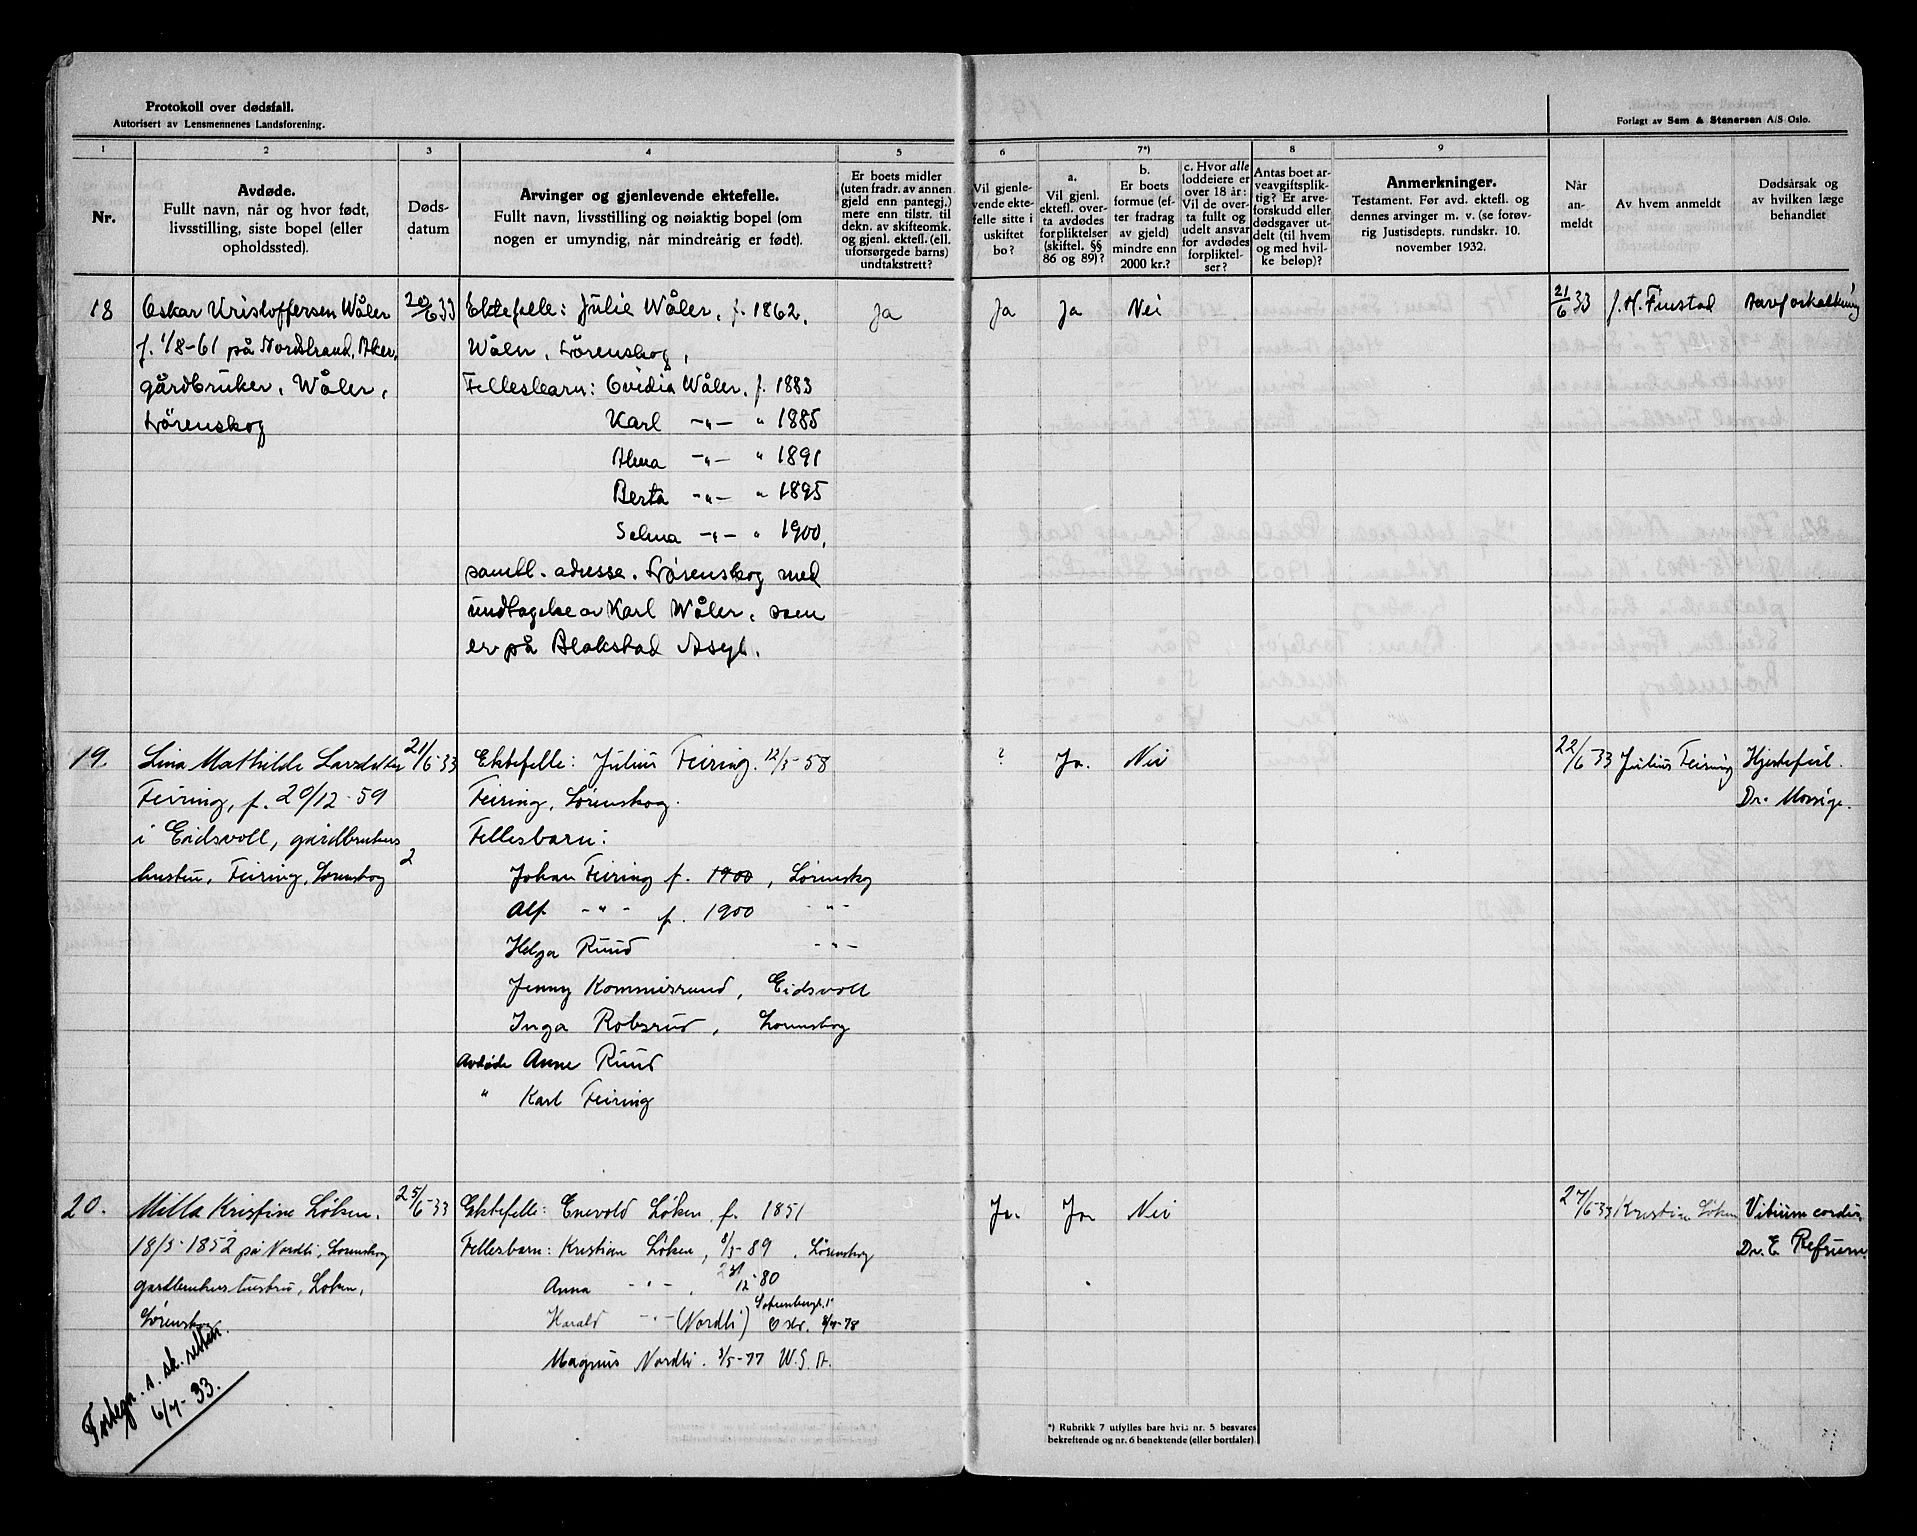 Protokoll over dødsfall.
Autorisert av Lensmennenes Landsforening.
Forlagt av Sem & Stenersen A/S Oslo.
1 2 3 4 5 6 7*) 8 9
Nr.
Avdøde.
Fullt navn, når og hvor født,
livsstilling, siste bopel (eller
opholdssted).
Døds-
datum
Arvinger og gjenlevende ektefelle.
Fullt navn, livsstilling og nøiaktig bopel (om
nogen er umyndig, når mindreårig er født).
Er boets midler
(uten fradr. av annen
gjeld enn pantegj.)
mere enn tilstr. til
dekn. av skifteomk.
og gjenl. ektefl. (ell.
uforsørgede barns)
undtakstrett?
Vil gjenle-
vende ekte-
felle sitte i
uskiftet
bo?
a.
Vil gjenl.
ektefl. over-
ta avdødes
forpliktelser
(skiftel. §§
86 og 89)?
b.
Er boets
formue (ef-
ter fradrag
av gjeld)
mindre enn
2000 kr.?
c. Hvor alle
loddeiere er
over 18 år:
Vil de over-
ta fullt og
udelt ansvar
for avdødes
forpliktel-
ser?
Antas boet ar-
veavgiftsplik-
tig? Er arve-
forskudd eller
dødsgaver ut-
delt (til hvem
og med hvil-
ke beløp)?
Anmerkninger.
Testament. Før avd. ektefl. og
dennes arvinger m. v. (se forøv-
rig Justisdepts. rundskr. 10.
november 1932.
Når
an-
meldt
Av hvem anmeldt
Dødsårsak og
av hvilken læge
behandlet
18 Oskar Kristoffersen Wåler 20/6 33 Ektefelle: Julie Wåler, f. 1862, Ja Ja Ja Nei 21/6 33 J. H. Finstad Aareforkalkning
f. 1/8-61 på Nordstrand, Aker, Wåler, Lörenskog,
gårdbruker, Wåler, Fellesbarn: Ovidia Wåler, f. 1883
Lörenskog Karl -"- " 1885
Alma -"- " 1891
Berta -"- " 1895
Selma -"- " 1900,
samtl. adresse. Lörenskog med
undtagelse av Karl Wåler, som
er på Blakstad Asyl.
19. Lina Mathilde Larsdatter 21/6-33 Ektefelle: Julius Feiring. 12/5-58 ? Ja. Nei 22/6 33 Julius Feiring Hjertefeil.
Feiring, f. 20/12-59 Feiring, Lørenskog. Dr. Morsige.
i Eidsvoll, gardbrukers Fellesbarn:
hustru, Feiring, Lørenskog 2 Johan Feiring f. 1900, Lørenskog
Alf -"- f. 1900 -"-
Helga Ruud -"-
Jenny Kommisrund, Eidsvoll
Inga Robsrud, Lørenskog
Avdøde Anne Ruud
" Karl Feiring
20. Milla Kristine Løken. 25/6-33 Ektefelle: Enevold Løken f. 1851 Ja. Ja Nei 27/6-33 Kristian Løken Vitium cordis.
18/3-1852 på Nordli, Lørenskog Fellesbarn: Kristian Løken, 8/3-89, Lørenskog Dr. E. Refsum.
gardbrukerhustru, Løken, Anna -"- 12-80
Lørenskog Harald -"- (Nordli) Oslo. 8/4-78
Magnus Nordli. 3/5-77 U.S.A.
Forhegn. s. sk. retten.
6/7-33.
*) Rubrikk 7 utfylles bare hvis nr. 5 besvares
bekreftende og nr. 6 benektende (eller bortfaler)